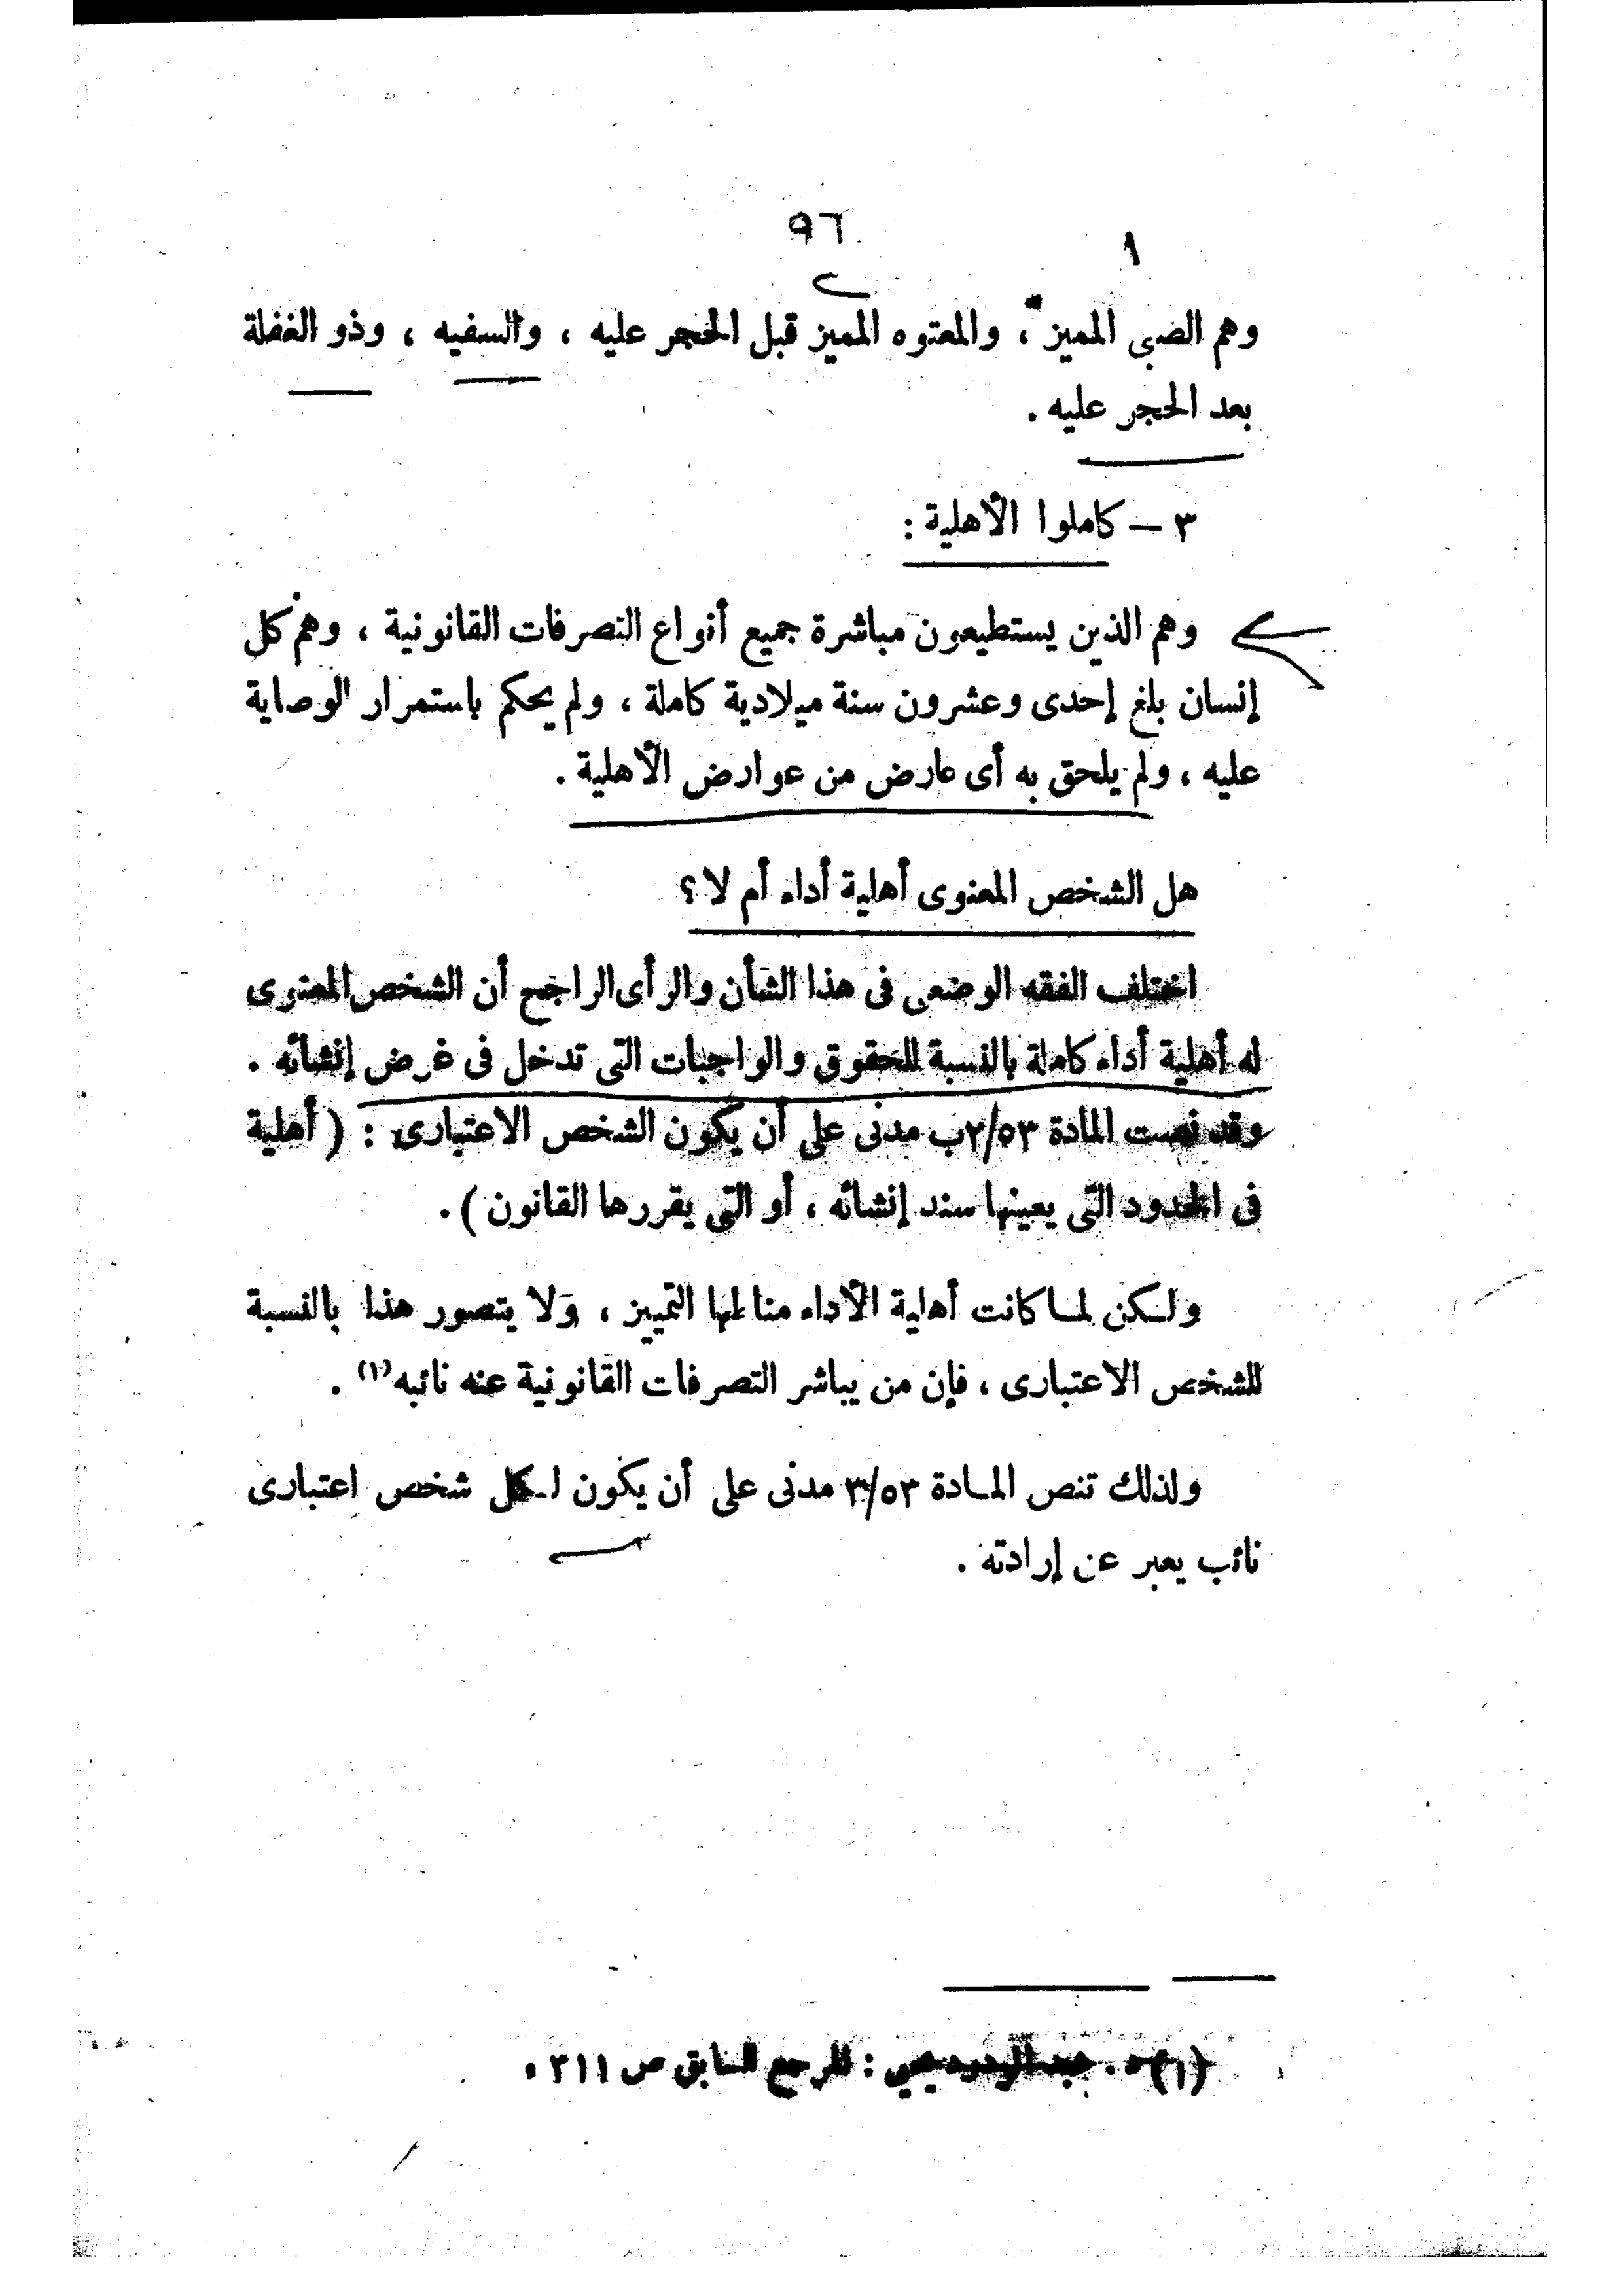 ٩٦
وهم الصبى المميز ، والمعتوه المميز قبل الحجر عليه ، والسفيه ، وذو الغفلة
بعد الحجر عليه .
٣ – كاملوا الأهلية :
وهم الذين يستطيعون مباشرة جميع أنواع التصرفات القانونية ، وهم كل
إنسان بلغ إحدى وعشرون سنة ميلادية كاملة ، ولم يحكم باستمرار الوصاية
عليه ، ولم يلحق به أى عارض من عوارض الأهلية .
هل الشخص المعنوى أهلية أداء أم لا ؟
اختلف الفقه الوضعى فى هذا الشأن والرأى الراجح أن الشخص المعنوى
له أهلية أداء كاملة بالنسبة للحقوق والواجبات التى تدخل فى غرض إنشائه .
وقد نصت المادة ٢/٥٣ب مدنى على أن يكون الشخص الاعتبارى : ( أهلية
فى الحدود التى يعينها سند إنشائه ، أو التى يقررها القانون ) .
ولكن لما كانت أهلية الأداء مناطها التمييز ، ولا يتصور هذا بالنسبة
للشخص الاعتبارى ، فإن من يباشر التصرفات القانونية عنه نائبه (١) .
ولذلك تنص المادة ٣/٥٣ مدنى على أن يكون لكل شخص اعتبارى
نائب يعبر عن إرادته .
(١) د . يحيي : المرجع السابق ص ٣١١ .